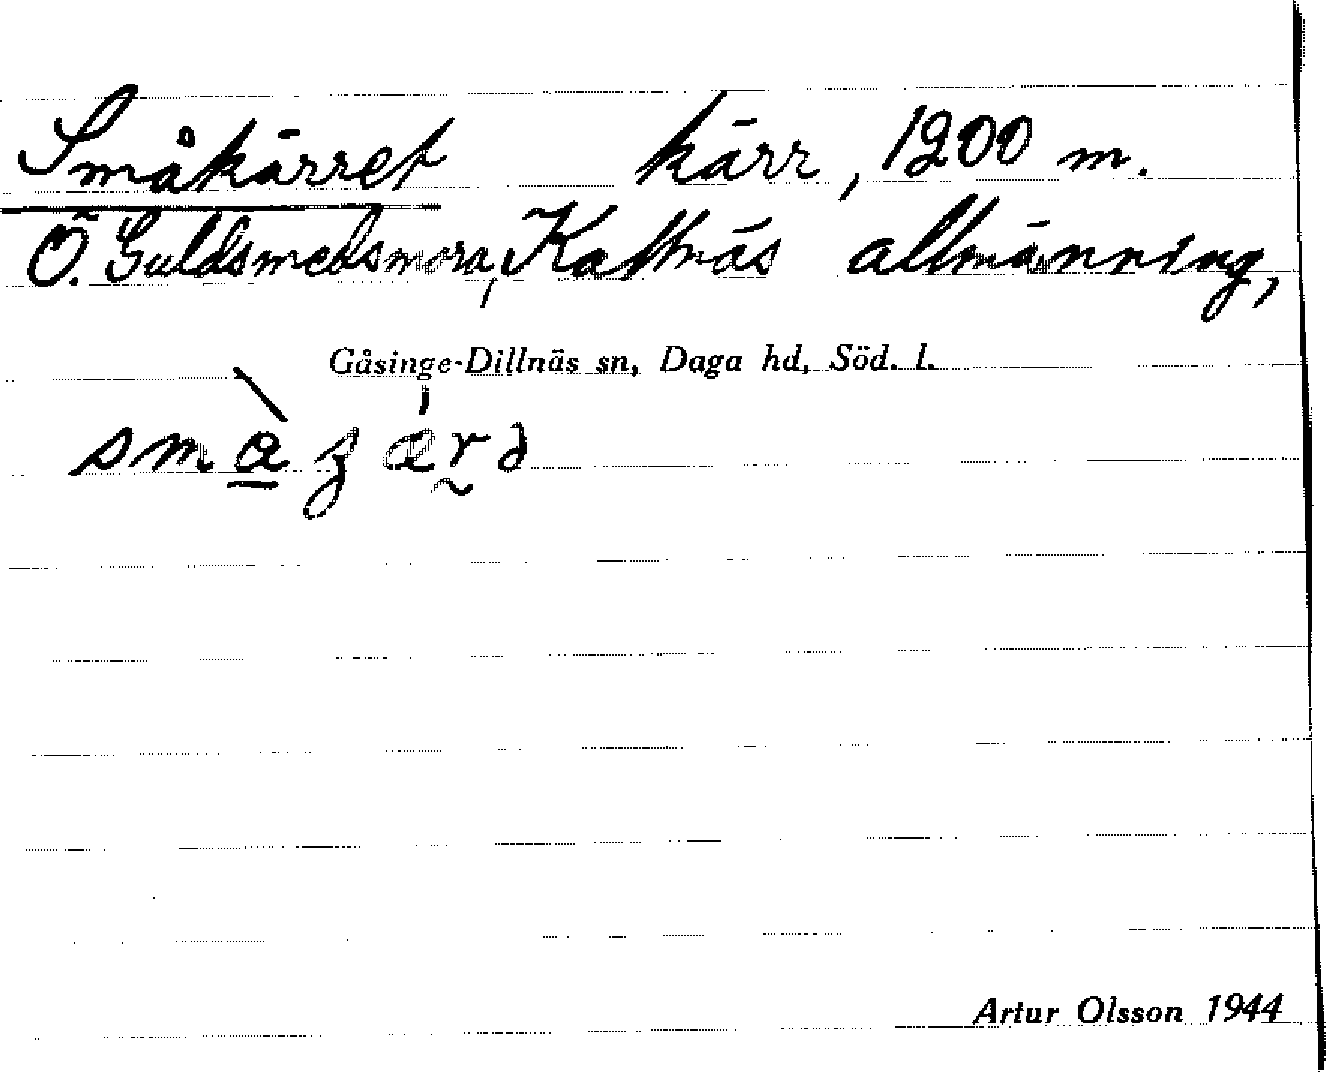 Småkärret kärr, 1200 m.
Ö. Guldsmedsmora, Kattnäs allmänning,
Gåsinge-Dillnäs sn, Daga hd, Söd. l.
Artur Olsson 1944